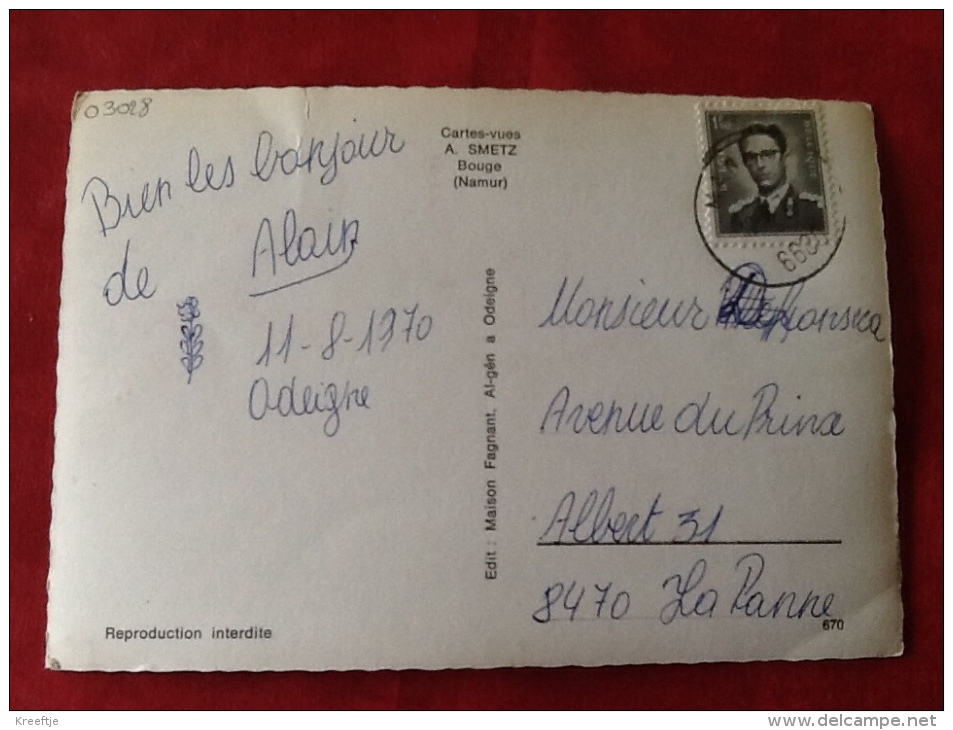 03028
Bien les bonjour
de Alain
11-8-1970
Odeigne
Reproduction interdite
Cartes-vues
A. SMETZ
Bouge
(Namur)
Edit : Maison Fagnant, Al-gén a Odeigne
Monsieur
Avenue du Prince
Albert 31
8470 La Panne
670
Kreeftje
www.delcampe.net